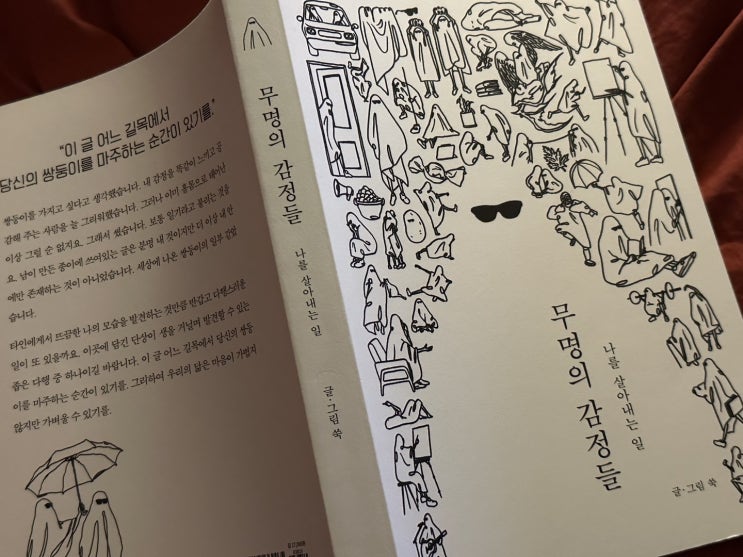 “이 글 어느 길목에서
당신의 쌍둥이를 마주하는 순간이 있기를.”
쌍둥이를 가지고 싶다고 생각했습니다. 내 감정을 똑같이 느끼고 공
감해 주는 사람을 늘 그리워했습니다. 그러나 이미 홀몸으로 태어난
이상 그럴 순 없지요. 그래서 썼습니다. 보통 일기라고 불리는 것을
요. 남이 만든 종이에 쓰여있는 글은 분명 내 것이지만 더 이상 내 안
에만 존재하는 것이 아니었습니다. 세상에 나온 쌍둥이의 일부 같았
습니다.
타인에게서 뜨끔한 나의 모습을 발견하는 것만큼 반갑고 다행스러운
일이 또 있을까요. 이곳에 담긴 단상이 생을 거닐며 발견할 수 있는
줍은 다행 중 하나이길 바랍니다. 이 글 어느 길목에서 당신의 쌍둥
이를 마주하는 순간이 있기를. 그리하여 우리의 닮은 마음이 가볍지
않지만 가벼울 수 있기를.
무명의 감정들
나를 살아내는 일
글·그림 쑥
무명의 감정들
나를 살아내는 일
글·그림 쑥